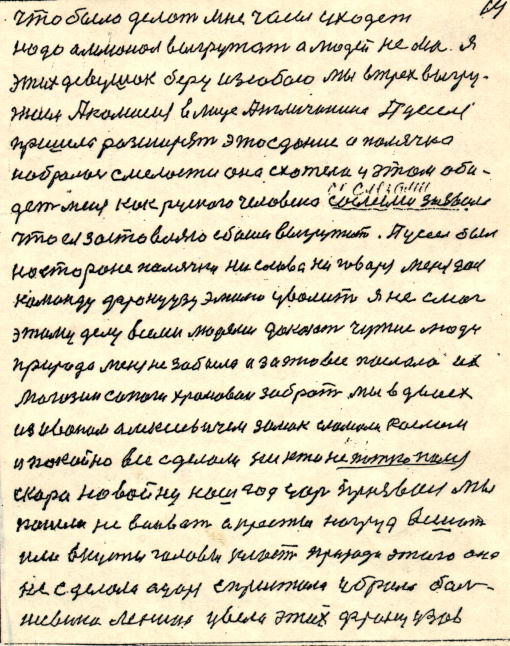 64
что было делат мне часы уходет
надо аммонал выгружат а людей нема. Я
этих девушок беру из собою мы втрех выгру-
в лице Англичанина Пуссел
пришла разширят этосдание а палячка
набралас смелости она схотела у этом оби-
дет меня как руского человека сослезами
с слезами
что ея заставляю сбаши выгружат. Пуссел был
настороне палячки ни слова ни говаря меня зон
команду французу уволит я не смог
этаму делу всеми людями доказат чужие люди
природа меня не забыла и заэтовсе послала их
могозин сапоги хромовыи забрат мы вдвоех
из иваном алексиевичем замак сломали
и пакойно все сделали ни кто не
скора на войну наш год цар призвал мы
пошли не ваеват а проста на груд
или в кусты галовы природа этаго она
не сделала а цар убрала бал-
шевика Ленина увела этих французов